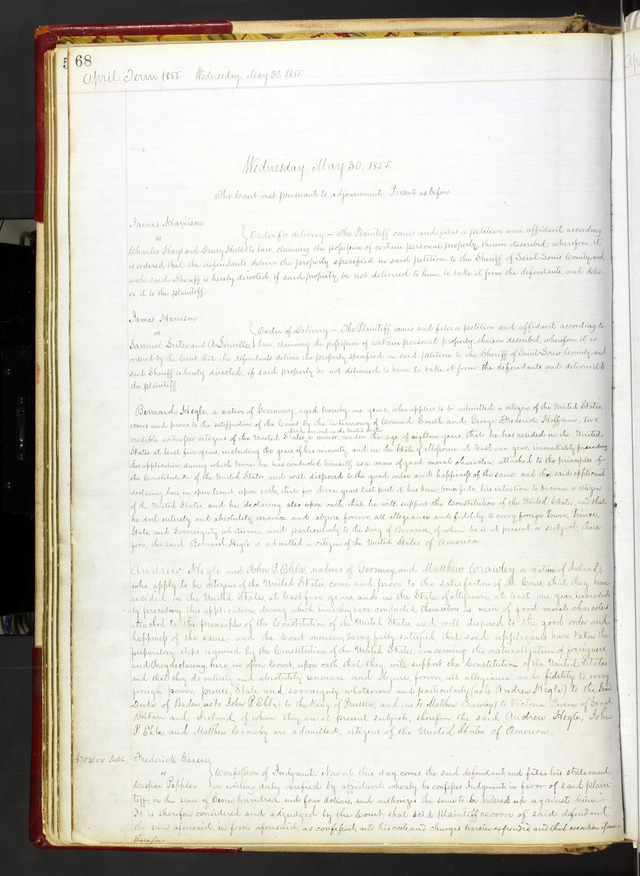 68
April Term 1855. Wednesday May 30. 1855.
Wednesday May 30. 1855.
The Court met persuant to adjournment Present as before.
James Harrison
vs
Order for delivery — The Plaintiff comes and files a petition and affidavit according
Charles and Henry to law, claiming the possession of certain personal property therein described; wherefore, it
is ordered that the defendants deliver the property specified in said petition to the Sheriff of Saint Louis County, and
and said Sheriff is hereby directed, if said property be not delivered to him, to take it from the defendants, and deliv-
er it to the plaintiff.
James Harrison
vs
Order of Delivery — The Plaintiff comes and files a petition and affidavit according to
Samuel and A law, claiming the possession of certain personal property, therein described, wherefore it is
ordered by the Court that the defendants deliver the property specified in said petition to the Sheriff of Saint Louis County, and
said Sheriff is hereby directed, if said property be not delivered to him, to take it from the defendants and deliver it to
the plaintiff.
Bernard Hegle, a native of Germany, aged twenty one years, who applies to be admitted a citizen of the United States,
comes and proves to the satisfaction of the Court by the testimony of Conrad Smith and George Frederick Hoffman, two
that he arrived in the United States
credible witnesses, citizens of the United States, a minor, under the age of eighteen years, that he has resided in the United
States at least five years, including the years of his minority, and in the State of Missouri at least one year, immediately preceding
this application, during which time he has conducted himself as a man of good moral character, attached to the principles of
the Constitution of the United States and well disposed to the good order and happiness of the same: and the said applicant
declaring here in open Court, upon oath, that for three years last past it has been bona fide, his intention to become a citizen
of the United States, and he declaring also upon oath that he will support the Constitution of the United States, and that
he doth entirely and absolutely renounce and abjure forever, all allegiance and fidelity to every foreign Power, Prince,
State and Sovereignty whatsoever, and particularly to the King of Bavaria, of whom he is at present a subject, there
fore, the said Bernard Hegle is admitted a citizen of the United States of America.
Andrew Hegle and John P Ehle, natives of Germany, and Matthew Crawley, a native of Ireland,
who apply to be citizens of the United States, come and prove to the satisfaction of the Court, that they have
resided in the United States at least five years, and in the State of Missouri, at least one year, immediate
ly preceding this application, during which time they have conducted themselves as men of good moral character
attached to the principles of the Constitution of the United States, and well disposed to the good order and
happiness of the same; and the Court moreover, being fully satisfied that said applicants have taken the
preparatory steps required by the Constitution of the United States, concerning the naturalization of foreigners
and they declaring, here, in open Court, upon oath, that they will support the Constitution of the United States
and that they do entirely and absolutely renounce and abjure, forever, all allegiance and fidelity to every
foreign power, prince, State and sovereignty whatsoever and particularly (as to Andrew Hegle) to the Grand
Duke of Baden (as to John P Ehle) to the King of Prussia, and (as to Matthew Crawley) to Victoria Queen of Great
Britain and Ireland, of whom they are at present subjects, therefore the said Andrew Hegle, John
P Ehle, and Matthew Crawley are admitted, citizens of the United States of America.
$704.00 Debt
Frederick
vs
Confession of Judgment. Now at this day comes the said defendant and files his statement
Caspar in writing duly verified by affidavit whereby he confesses Judgment in favor of said plain
tiff, in the sum of Seven hundred and four dollars, and authorizes the same to be entered up against him.—
It is therefore considered and adjudged by the Court that said plaintiff recover of said defendant
the sum aforesaid, in form aforesaid, as confessed, and his costs and charges herein expended and that execution issue
therefor.